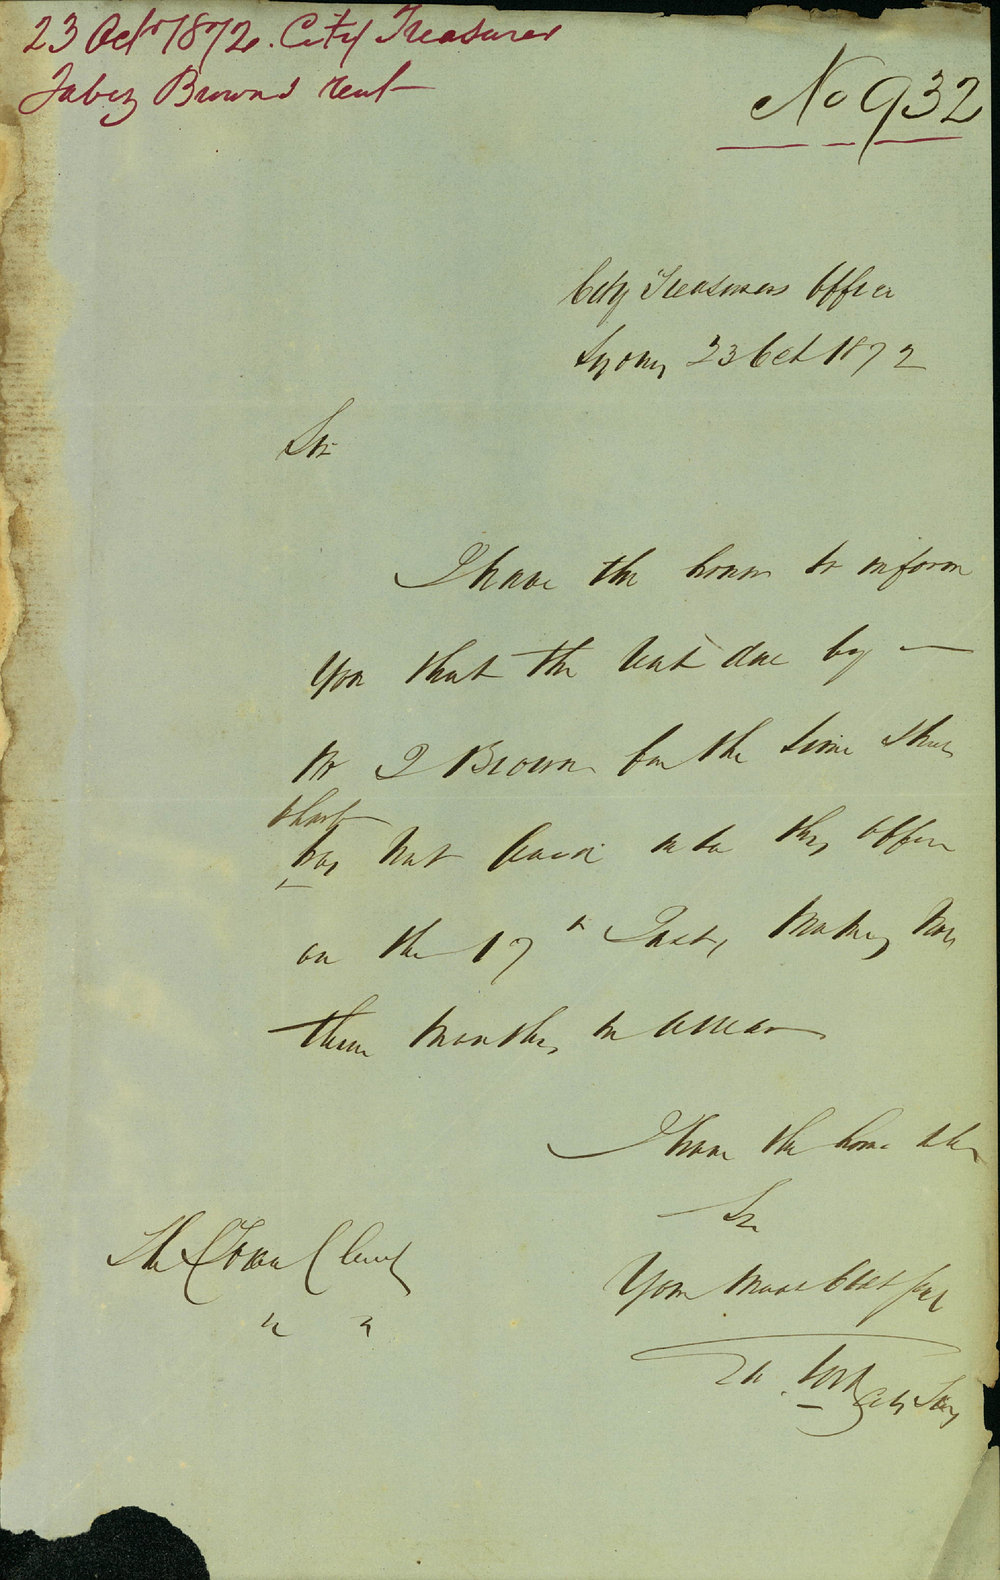 23 Octr 1872. City Treasurer
Jabez Browns rent
No 932
City Treasurers Office
Sydney 23 Oct 1872
Sir
I have the honor to inform
you that the rent due by
Mr J Brown for the time
that
has not paid into this office
on the 17th Inst, making now
three months in arrear
I have the honor
Sir
Your most Obdt Ser
The Town Clerk
" "
City Treasy